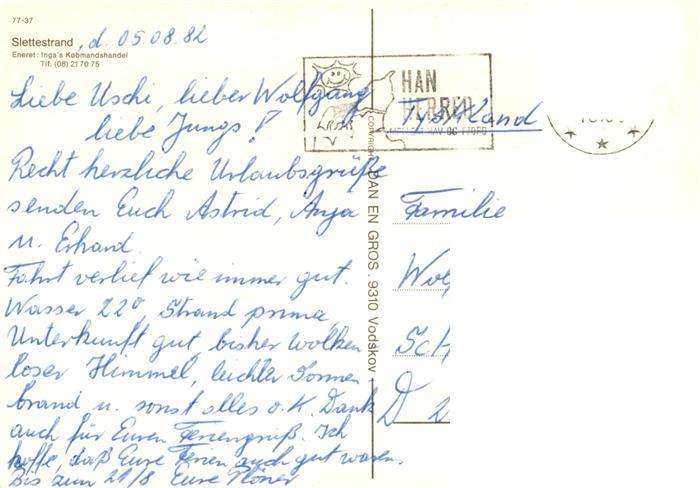 77-37
Slettestrand, d. 05.08.82
Eneret: Inga's Købmandshandel
Tlf. (08) 21 70 75
Liebe Uschi, lieber Wolfgang
liebe Jungs!
Recht herzliche Urlaubsgrüße
senden Euch Astrid, Anja
u. Erhard.
Fahrt verlief wie immer gut.
Wasser 22°, Strand prima,
Unterkunft gut, bisher wolken
loser Himmel, leichter Sonnen
brand u. sonst alles o.K. Dank
auch für Euren Feriengruß. Ich
hoffe, daß Eure Ferien auch gut waren.
Bis zum 21/8 Eure
DAN EN GROS. 9310 Vodskov
HAN
HERRED
HAV OG FJORD
Tyskland
Familie
Wol
Sch
D 2